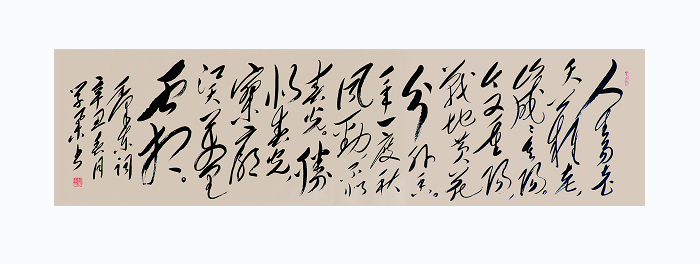 人生易老
天难老，
岁岁重阳。
今又重阳，
战地黄花
分外香。
一年一度秋
风劲，不似
春光。胜
似春光，
寥廓
江天万里
霜。
毛泽东词
辛丑春月
书